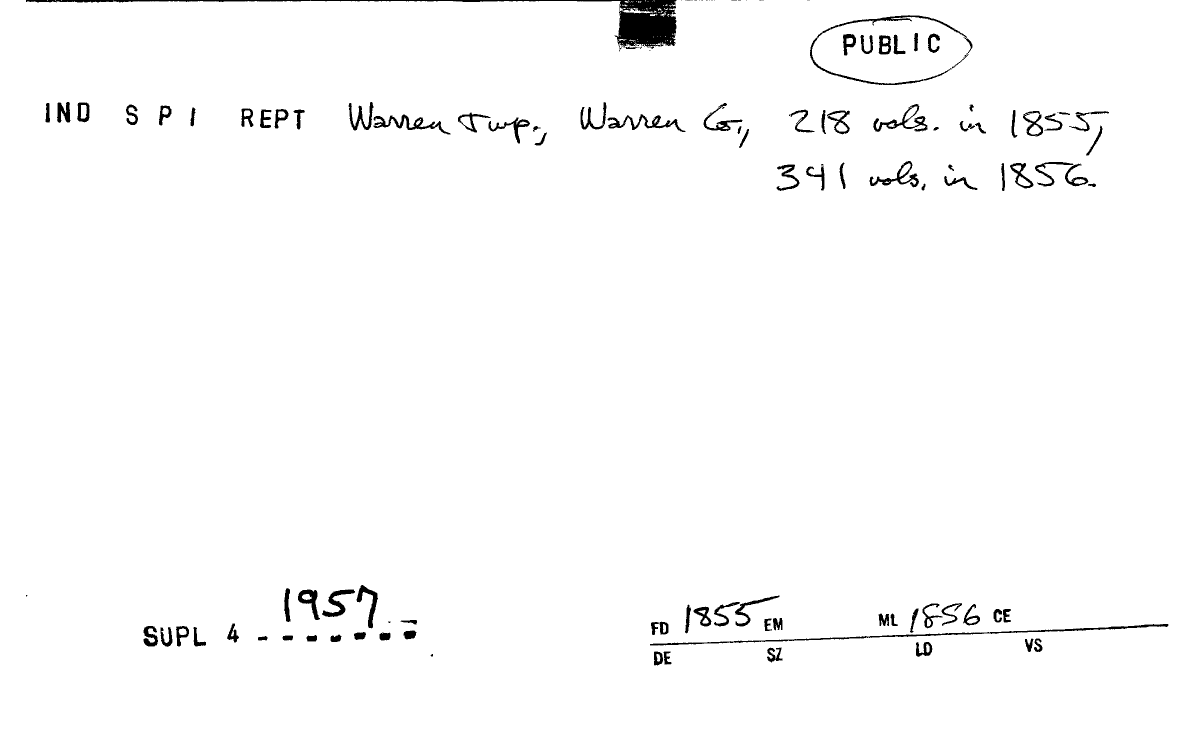 PUBLIC
IND S P I REPT Warren Twp., Warren Co., 218 vols. in 1855,
341 vols. in 1856.
SUPL 4 - 1957
FD 1855 EM ML 1856 CE
DE SZ LD VS